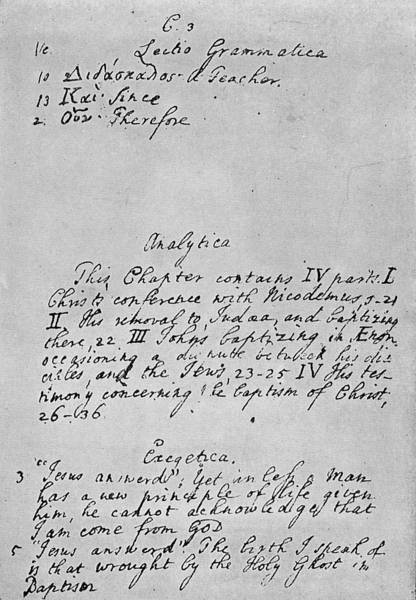 C. 3
Ve. Lectio Grammatica
10 Διδάσκαλος. A Teacher.
13 Καὶ. Since
2. Οὖν. Therefore
Analytica
This Chapter contains IV parts. I
Christs conference with Nicodemus, 1-21
II. His removal to Judaa, and baptizing
there, 22 III Johns baptizing in Ænon
occasioning a dispute between his dis
ciples, and the Jews, 23-25 IV His tes-
timony concerning the baptism of Christ,
26-36.
Exegetica.
3 "Jesus answerd", Yet unless a Man
has a new principle of life given
him, he cannot acknowledge, that
I am come from GOD
5 "Jesus answerd" The birth I speak of
is that wrought by the Holy Ghost in
Baptism